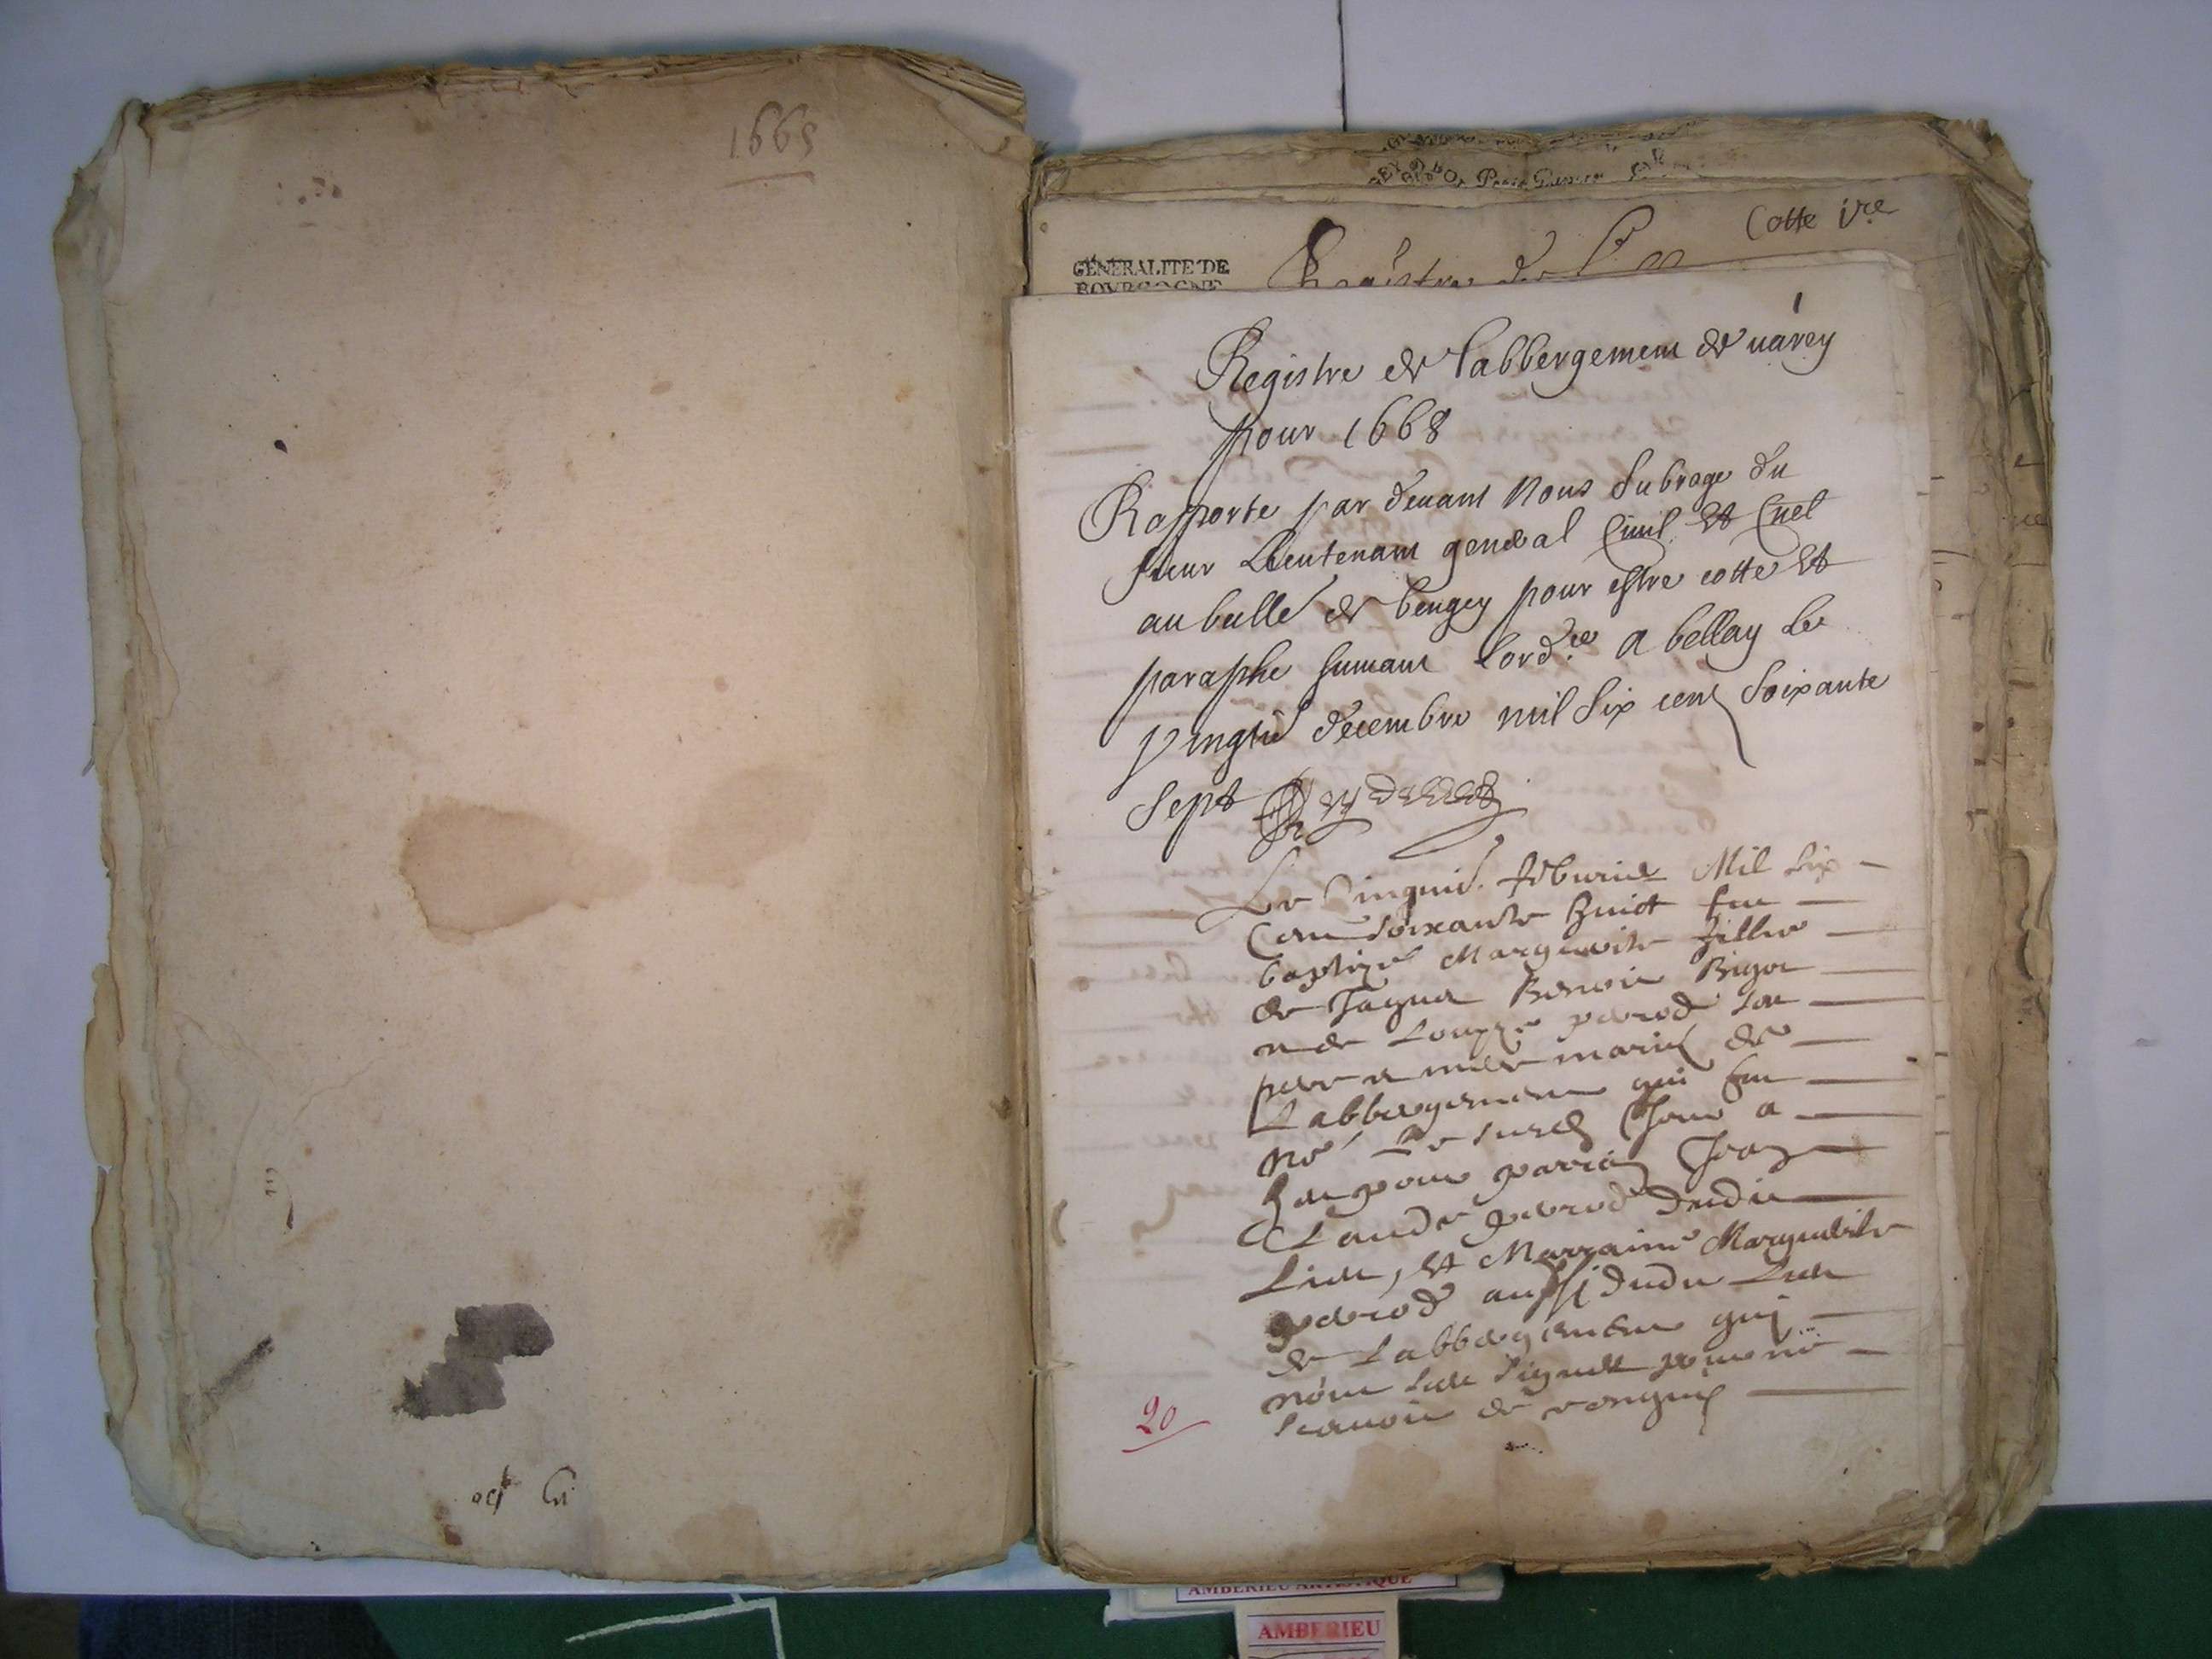 1665
Cotte 1re
GENERALITE DE
BOVRGOGNE
Registre de
1
Registre de labbergement de varey
pour 1668
Rapporte par devant Nous Subroge du
sieur Lieutenant general Civil et Cnel
au balle de beugey pour estre cotte et
paraphe suivant lordce a bellay le
vingtie decembre mil six cent soixante
sept
Le cinquie febvrier Mil six
cent soixante huict fut
baptizé Marguerite fillie
de Jaque Benoit Bigot
et de perrod son
pere et mere mariés de
Labbergement qui fut
né le susd Jour a
heu pour parrain Jean
Claude perrod dudit
Lieu, et Marraine Marguerite
perrod aussi dudit Lieu
de Labbergement qui
nont sceu signer pour ne
scavoir de requis
20
AMBERIEU ARTISTIQUE
AMBERIEU